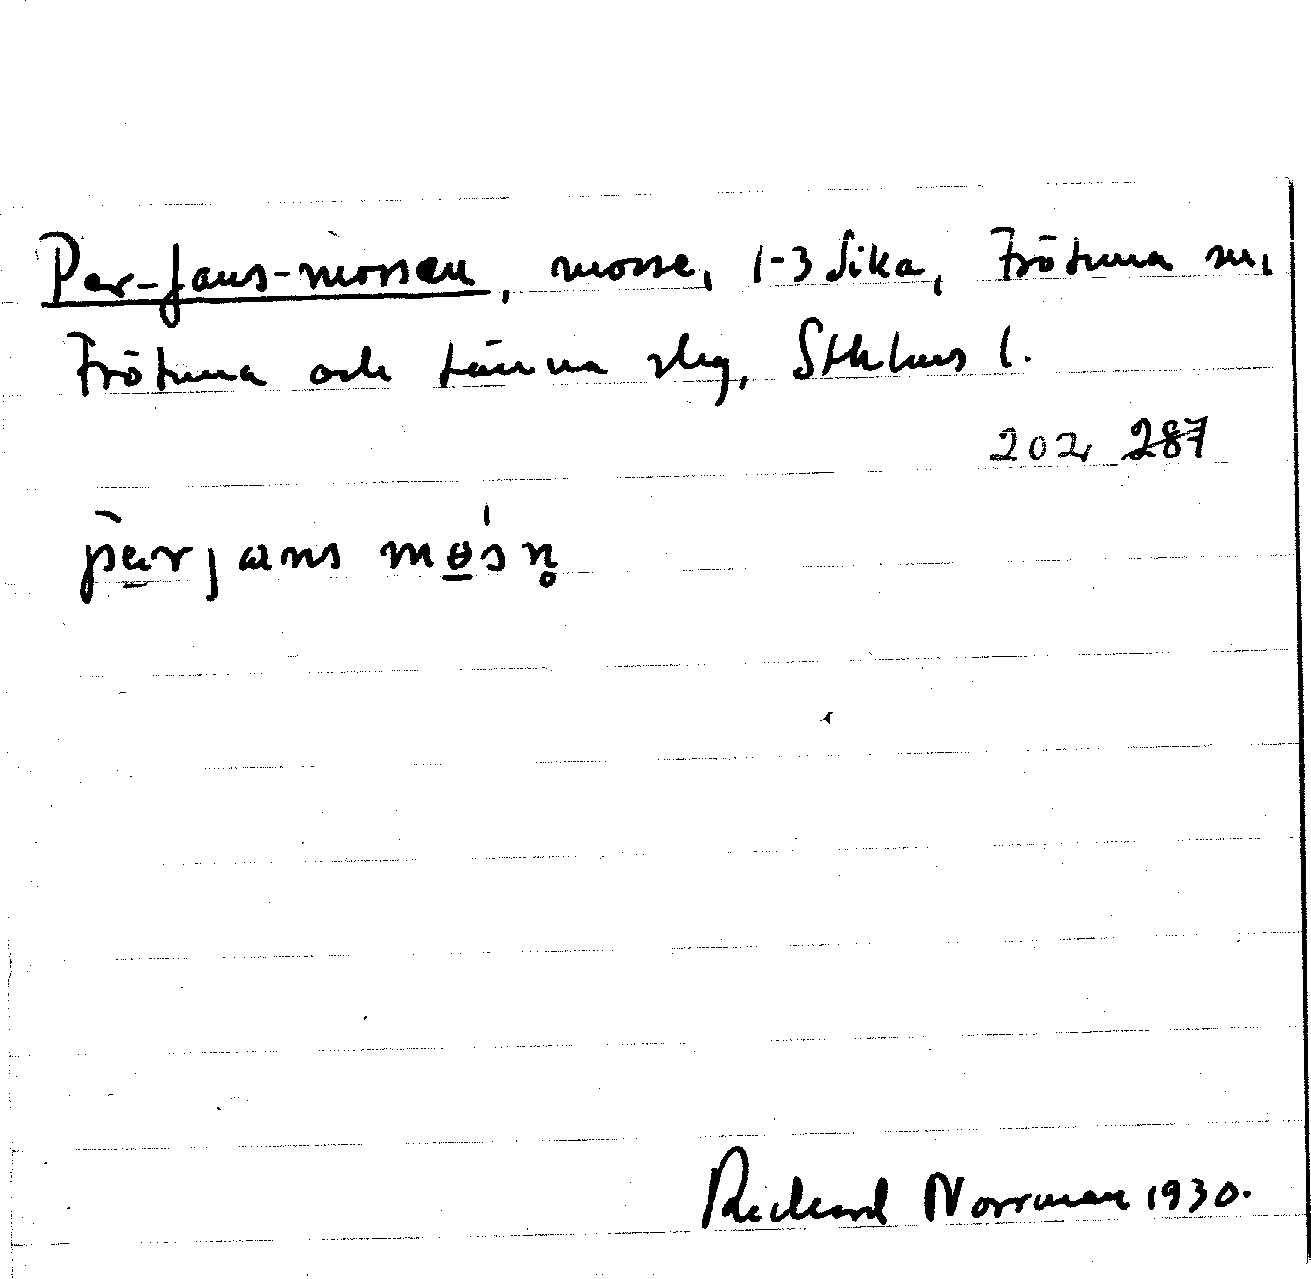 Per-Jans-mossen, mosse, 1-3 Sika, Frötuna sn,
Frötuna och Länna skg, Sthlms l.
202, 287
pärjans møsn̥
Richard Norrman 1930.